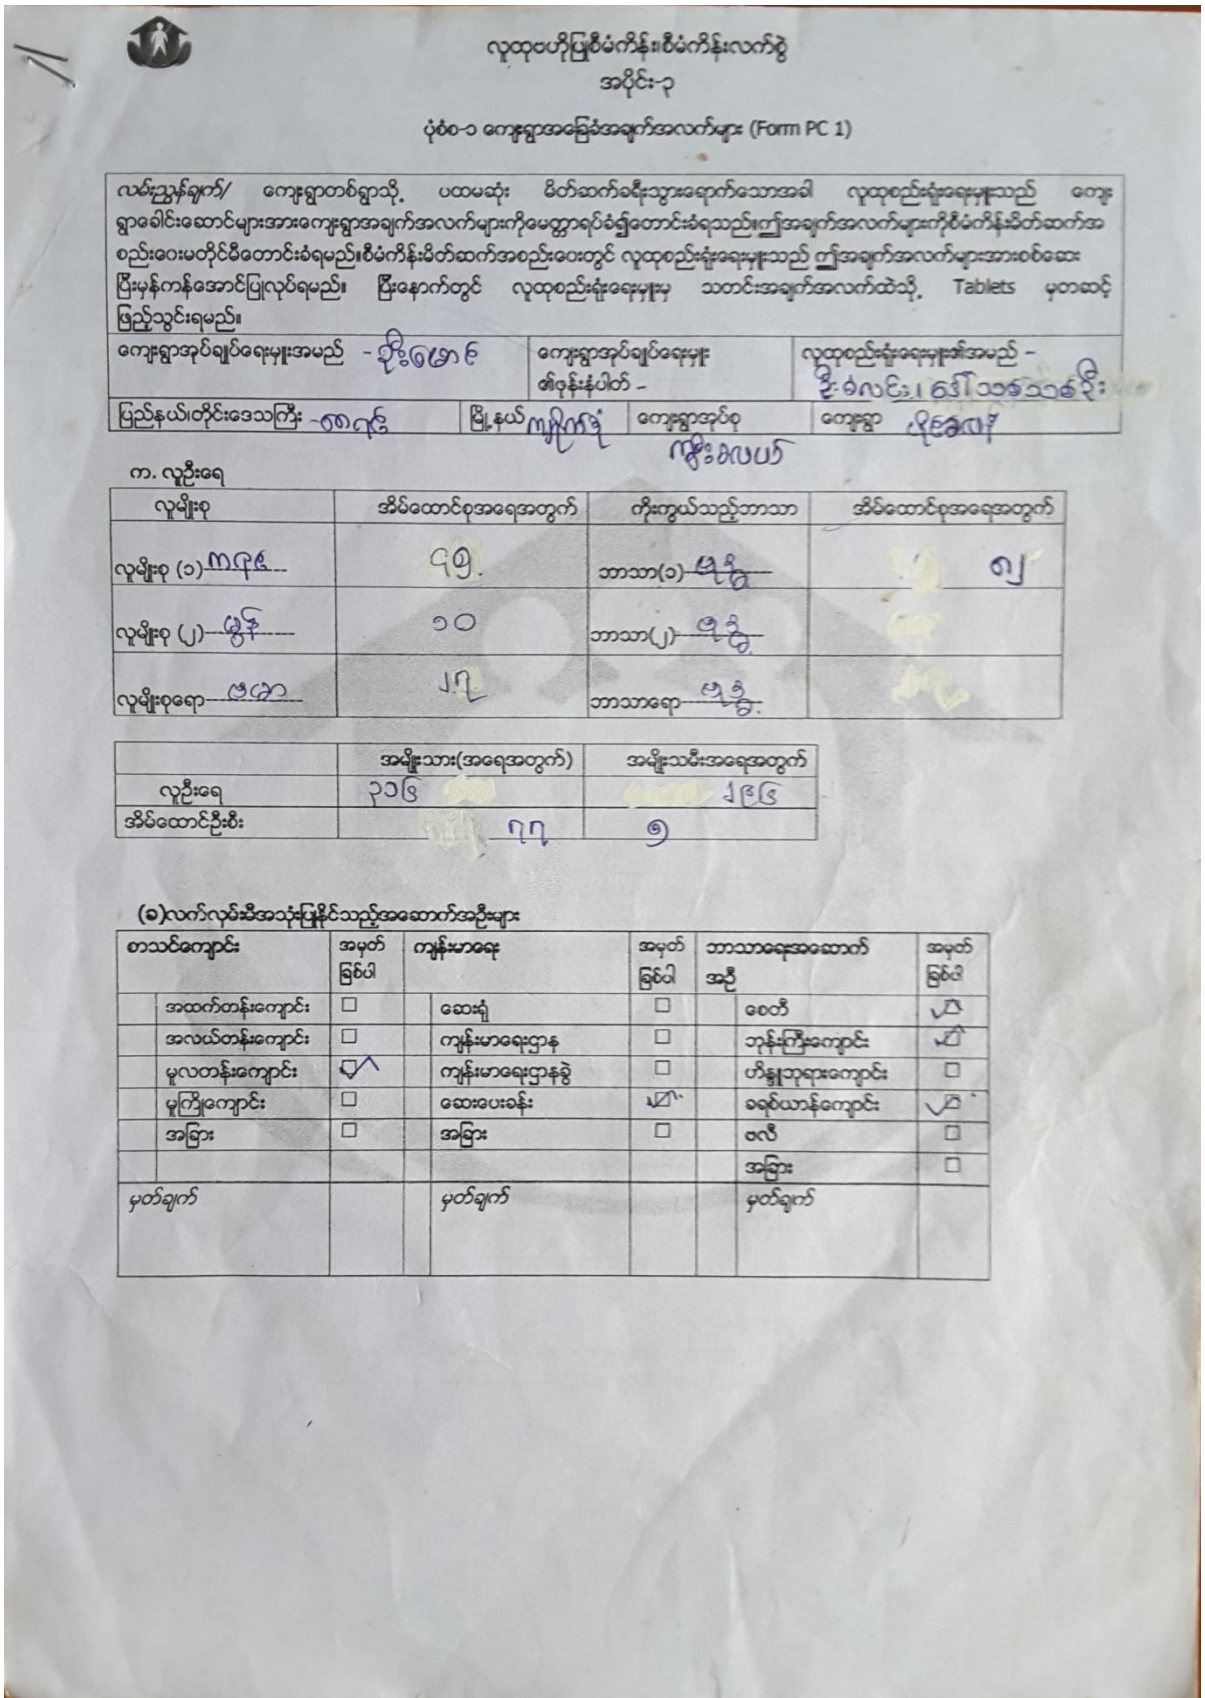 လူထုဗဟိုပြုစီမံကိန်း၊စီမံကိန်းလက်စွဲ
အပိုင်း-၃
ပုံစံစ-၁ ကျေးရွာအခြေခံအချက်အလက်များ (Form PC 1)
လမ်းညွှန်ချက်/ ကျေးရွာတစ်ရွာသို့ ပထမဆုံး မိတ်ဆက်ခရီးသွားရောက်သောအခါ လူထုစည်းရုံးရေးမှူးသည် ကျေး
ရွာခေါင်းဆောင်များအားကျေးရွာအချက်အလက်များကိုမေတ္တာရပ်ခံ၍တောင်းခံရသည်။ဤအချက်အလက်များကိုစီမံကိန်းမိတ်ဆက်အ
စည်းဝေးမတိုင်မီတောင်းခံရမည်။စီမံကိန်းမိတ်ဆက်အစည်းဝေးတွင် လူထုစည်းရုံးရေးမှူးသည် ဤအချက်အလက်များအားစစ်ဆေး
ပြီးမှန်ကန်အောင်ပြုလုပ်ရမည်။ ပြီးနောက်တွင် လူထုစည်းရုံးရေးမှူးမှ သတင်းအချက်အလက်ထဲသို့ Tablets မှတဆင့်
ဖြည့်သွင်းရမည်။
ကျေးရွာအုပ်ချုပ်ရေးမှူးအမည် - ဦးမောင် ကျေးရွာအုပ်ချုပ်ရေးမှူး လူထုစည်းရုံးရေးမှူး၏အမည် –
၏ဖုန်းနံပါတ် – ဦးစံလင်း၊ ဒေါ်သစ်သစ်ဦး
ပြည်နယ်၊တိုင်းဒေသကြီး - ကရင် မြို့နယ် ကျိုက်ဒုံ ကျေးရွာအုပ်စု ကျေးရွာ
က. လူဦးရေ
လူမျိုးစု အိမ်ထောင်စုအရေအတွက် ကိုးကွယ်သည့်ဘာသာ အိမ်ထောင်စုအရေအတွက်
လူမျိုးစု (၁) ကရင် ၄၅ ဘာသာ(၁) ဗုဒ္ဓ ၈၂
လူမျိုးစု (၂) မွန် ၁၀ ဘာသာ(၂) ဗုဒ္ဓ
လူမျိုးစုရော ဗမာ ၂၇ ဘာသာရော ဗုဒ္ဓ
အမျိုးသား(အရေအတွက်) အမျိုးသမီးအရေအတွက်
လူဦးရေ ၃၁၆ ၂၉၆
အိမ်ထောင်ဦးစီး ၇၇ ၅
(ခ)လက်လှမ်းမီအသုံးပြုနိုင်သည့်အဆောက်အဦးများ
စာသင်ကျောင်း အမှတ် ကျန်းမာရေး အမှတ် ဘာသာရေးအဆောက် အမှတ်
ခြစ်ပါ ခြစ်ပါ အဦ ခြစ်ပါ
အထက်တန်းကျောင်း ဆေးရုံ စေတီ
အလယ်တန်းကျောင်း ကျန်းမာရေးဌာန ဘုန်းကြီးကျောင်း
မူလတန်းကျောင်း ကျန်းမာရေးဌာနခွဲ ဟိန္ဒူဘုရားကျောင်း
မူကြိုကျောင်း ဆေးပေးခန်း ခရစ်ယာန်ကျောင်း
အခြား အခြား ဗလီ
အခြား
မှတ်ချက် မှတ်ချက် မှတ်ချက်